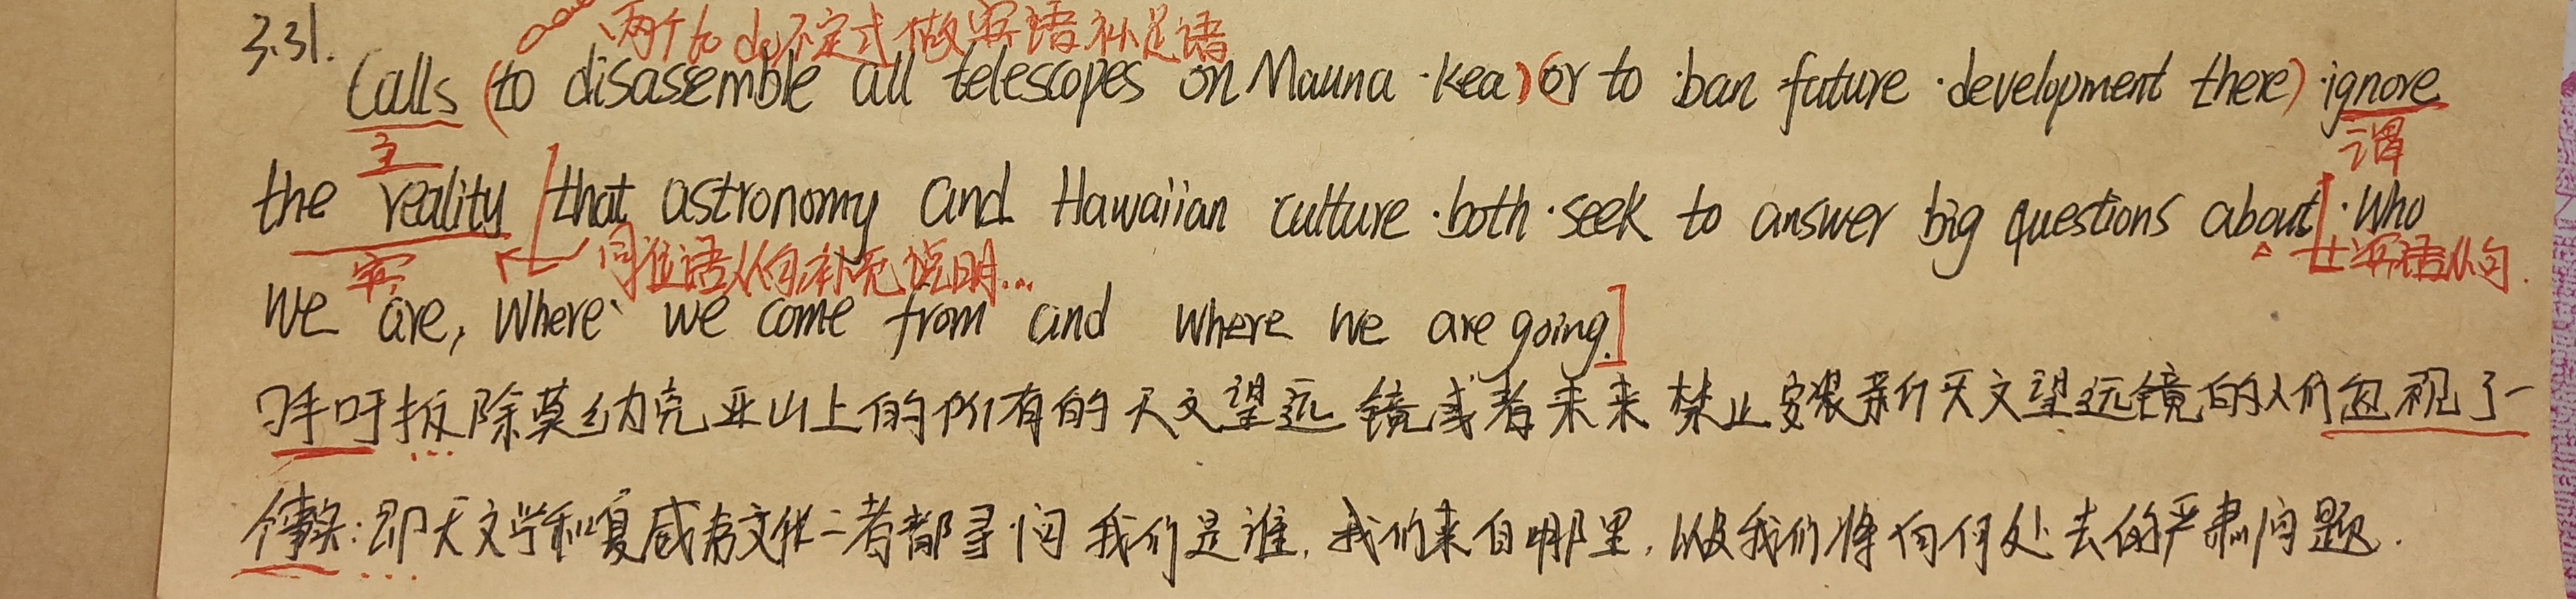 3.31.
两个to do不定式做宾语补足语
Calls (to disassemble all telescopes on Mauna Kea) (or to ban future development there) ignore
主
谓
the reality [that astronomy and Hawaiian culture both seek to answer big questions about] who
宾
同位语从句补充说明...
宾语从句.
we are, where we come from and where we are going.]
呼吁拆除莫纳克亚山上的所有的天文望远镜或者未来禁止安装新行天文望远镜的人们忽视了一
个事实:即天文学和夏威夷文化二者都寻问我们是谁,我们来自哪里,以及我们将向何处去的严肃问题.